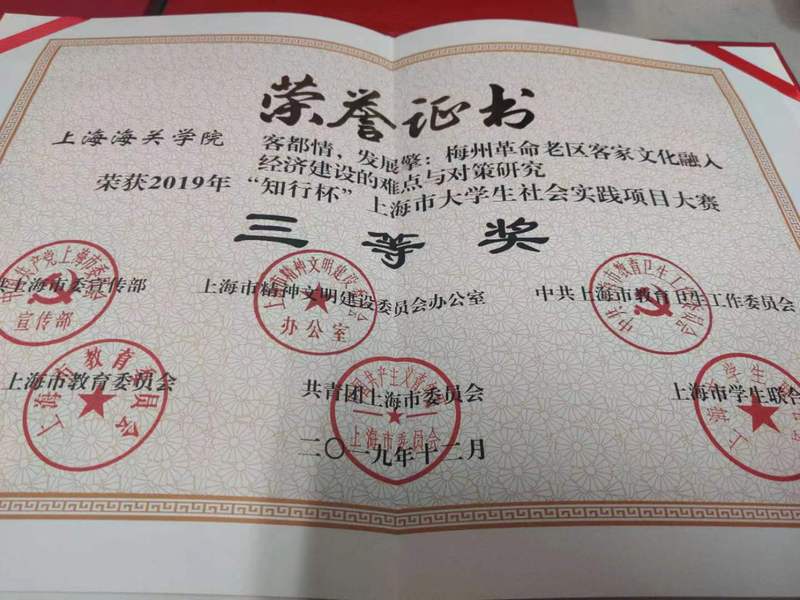 荣誉证书
上海海关学院
客都情,发展擎:梅州革命老区客家文化融入
经济建设的难点与对策研究
荣获2019年“知行杯”上海市大学生社会实践项目大赛
三等奖
共上海市委宣传部
上海市精神文明建设委员会办公室
中共上海市教育卫生工作委员会
上海市教育委员会
共青团上海市委员会
上海市学生联合
二〇一九年十二月
中国共产党上海市委员会
宣传部
上海市精神文明建设委员会
办公室
中共上海市教育卫生工作委员会
上海市教育委员会
上海市委员会